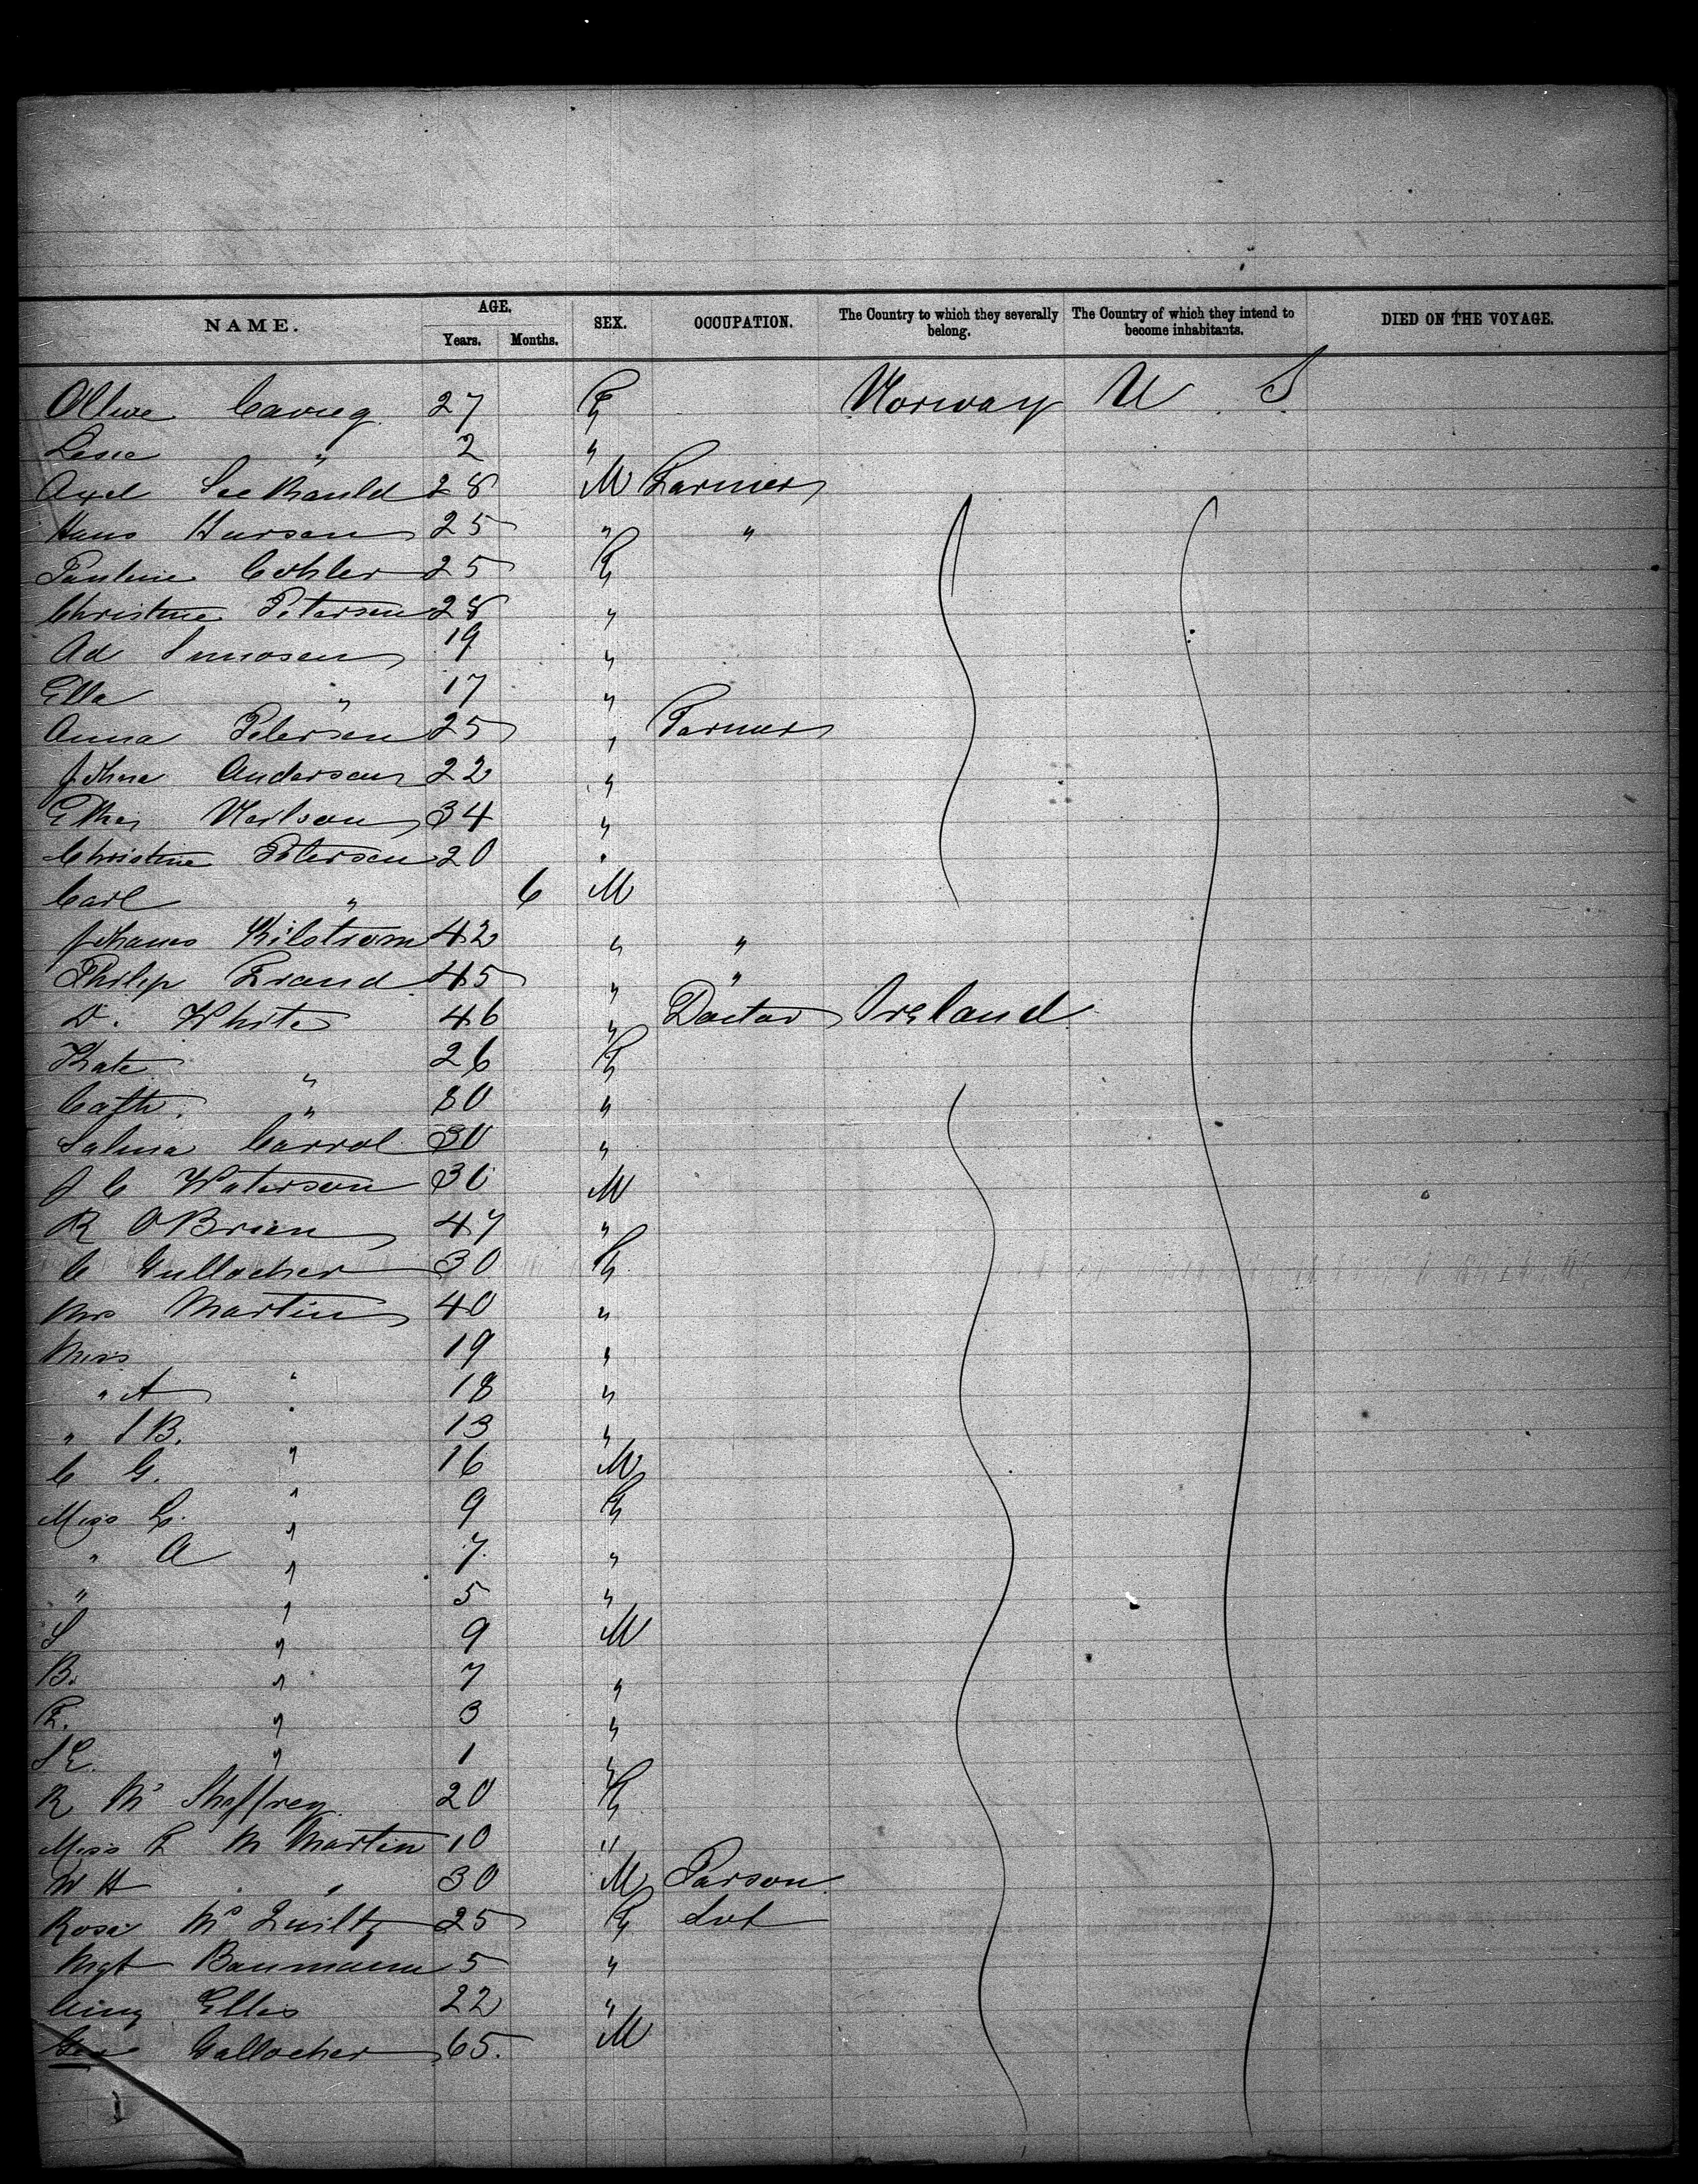 NAME. AGE. Years. Months. SEX. OCCUPATION. The Country to which they severally belong. The Country of which they intend to become inhabitants. DIED ON THE VOYAGE.
Norway U S
27 F
" 2 "
Axel 28 M Farmer
Hans Hansen 25 " "
Pauline Cohler 25 F
Christine Petersen 28 "
Ad 19 "
Ella " 17 "
Anna Petersen 25 " Farmer
Andersen 22 "
Neilson 34 "
Christine Petersen 20 "
Carl " 6 M
Johanes Kilstrom 42 " "
Philip 45 " "
D. White 46 " Doctor Ireland
Kate " 26 F
Cath. " "
Salina Carrol 30 "
J C Waterson 30 M
R OBrien 47 "
C Gullocher 30 F
Mrs Martin 40 "
Miss 19 "
" A " 18 "
" J B. " 13 "
C G. " 16 M
Miss L. " 9 F
" A " 7 "
" " 5 "
S " 9 M
B. " 7 "
F. " 3 "
S E. " 1 "
R Mc Shaffrey 20 F
Miss F M Martin 10 "
W H " 30 M Parson
Rose Mc Quilty 25 F
Mgt Baumann 5 "
Elles 22 "
Gallocher 65. M